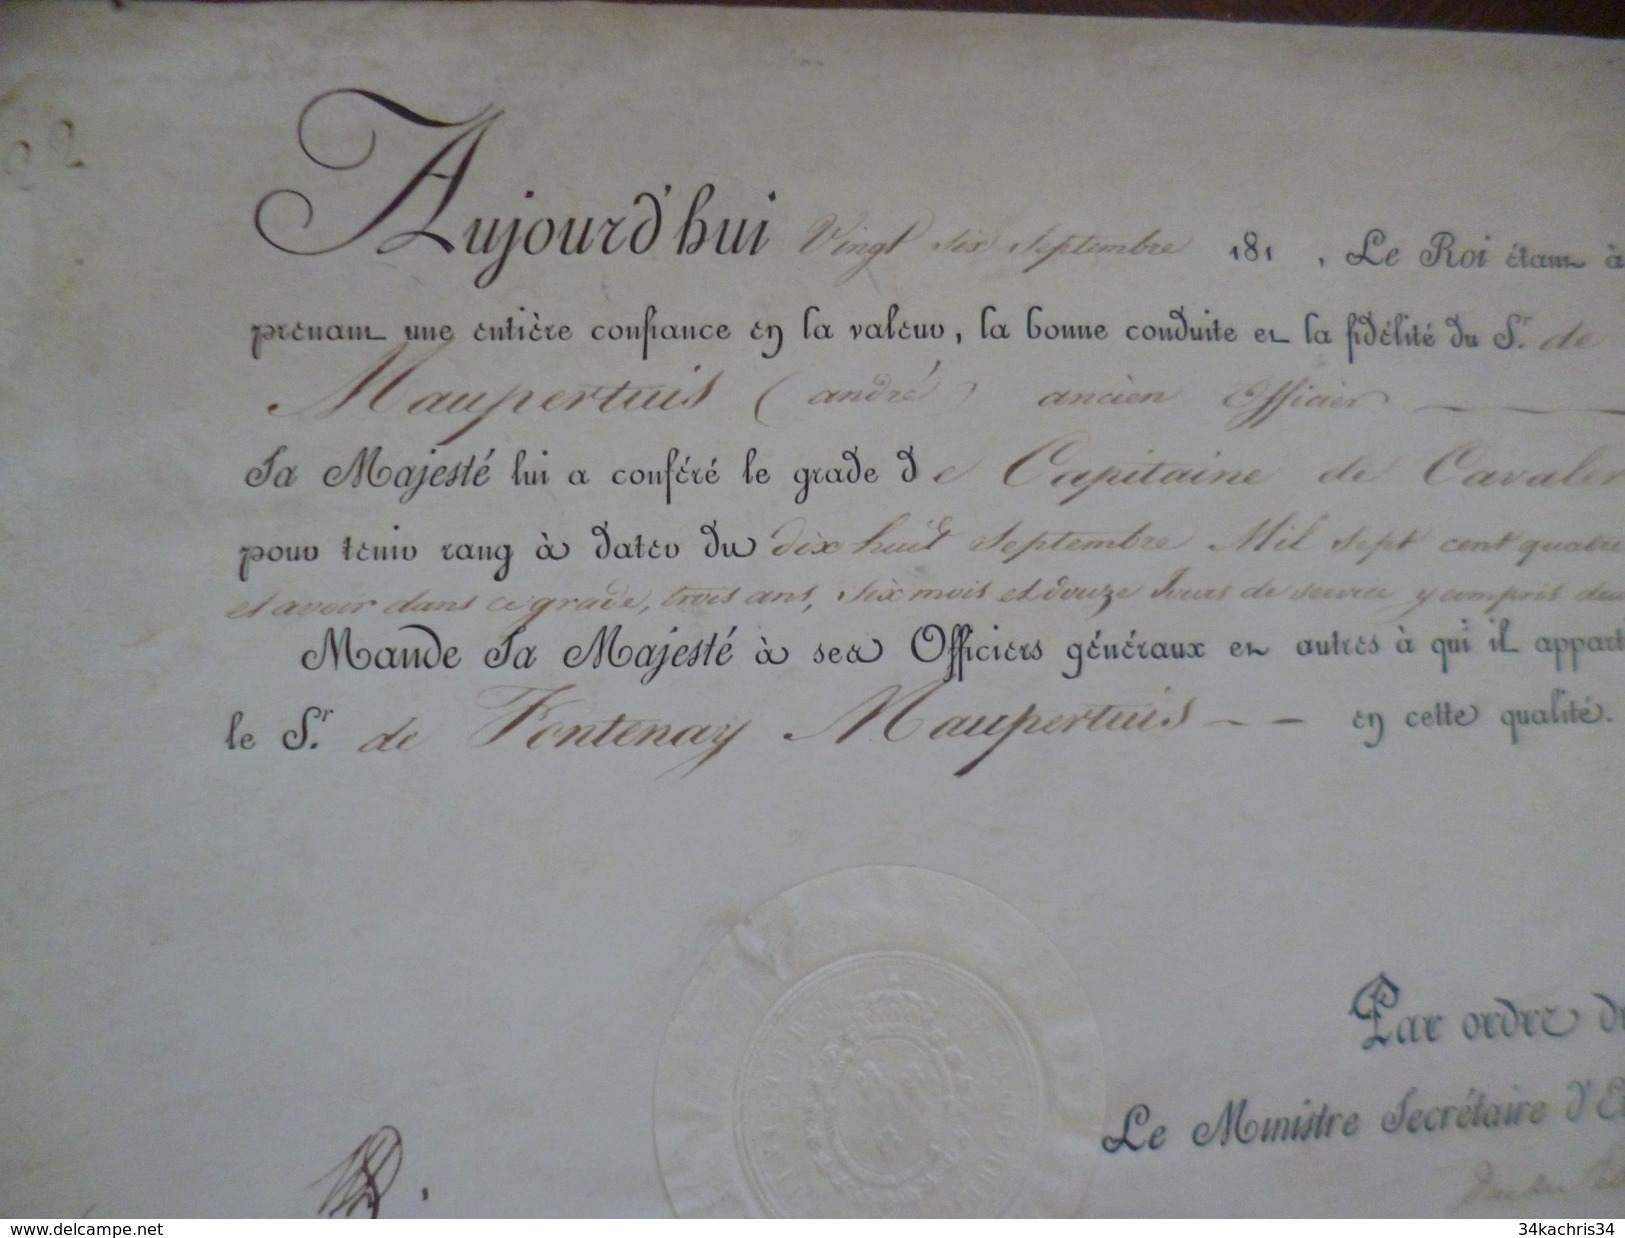 Aujourd'hui Vingt six Septembre 181 , Le Roi étant à
prenant une entière confiance en la valeur, la bonne conduite et la fidélité du Sr. de
Maupertuis (andré) ancien Officier
Sa Majesté lui a conféré le grade de Capitaine de Cavaler
pour tenir rang à dater du dix huit Septembre Mil sept cent quatre
et avoir dans ce grade, trois ans, six mois et douze Jours de service y compris deu
Mande Sa Majesté à ses Officiers généraux et autres à qui il appart
le Sr. de Fontenay Maupertuis -- en cette qualité.
Par ordre du
Le Ministre Secrétaire d'Et
delcampe.net
34kachris34